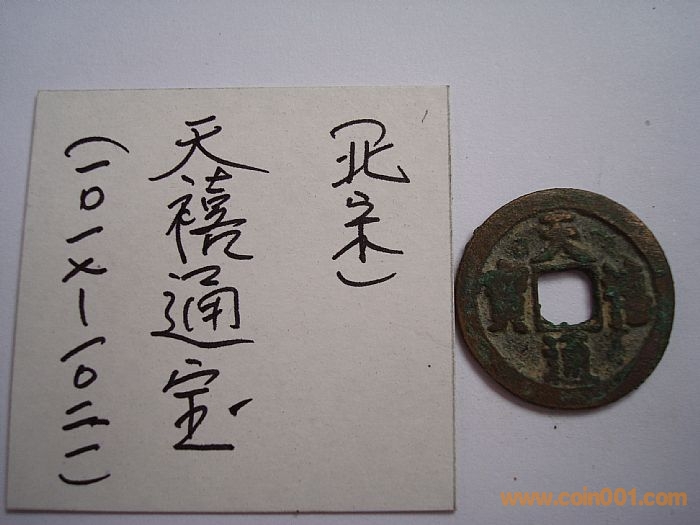 （北宋）
天禧通宝
（一〇一七—一〇二一）
天禧通寶
www.coin001.com